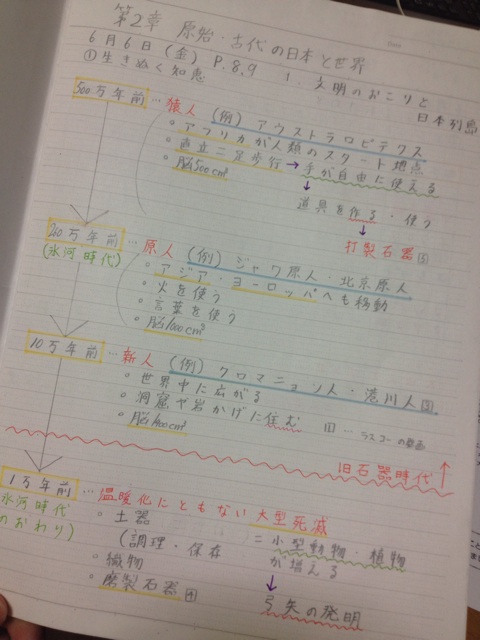 第2章 原始・古代の日本と世界
6月6日(金) P.8,9 1.文明のおこりと
日本列島
①生きぬく知恵
500万年前 … 猿人 (例) アウストラロピテクス
。アフリカが人類のスタート地点
。直立二足歩行→手が自由に使える
↓
道具を作る・使う
↓
。脳500cm³
打製石器⑤
200万年前 … 原人 (例) ジャワ原人・北京原人
(氷河時代)
。アジア・ヨーロッパへも移動
。火を使う
。言葉を使う
。脳1000cm³
10万年前 … 新人 (例) クロマニョン人・港川人③
。世界中に広がる
。洞窟や岩かげに住む
。脳1400cm³
… ラスコーの壁画
旧石器時代 ↑
1万年前 … 温暖化にともない大型死滅
氷河時代
のおわり)
。土器
(調理・保存
= 小型動物・植物
が増える
。織物
↓
。磨製石器④
弓矢の発明